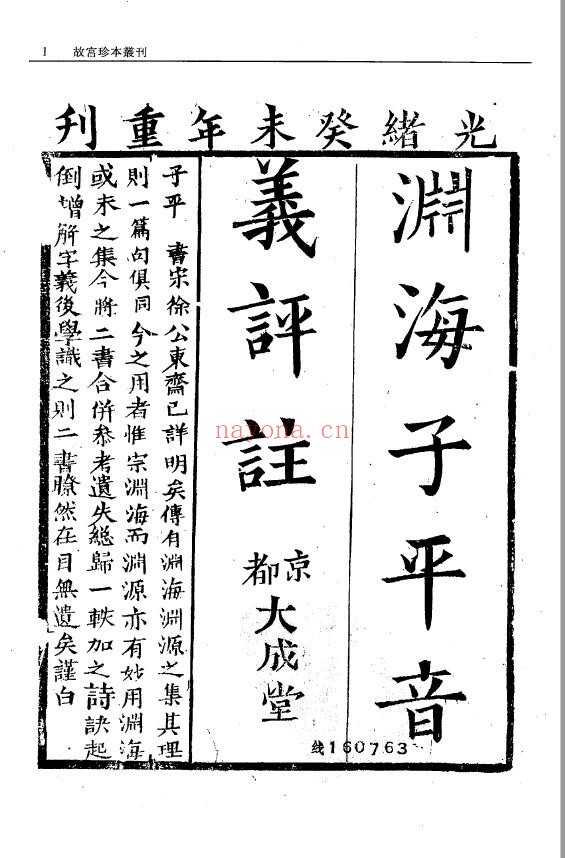 1 故宮珍本叢刊
光緒癸未年重刊
淵海子平音
義評註
京都
大成堂
线160763
子平 書宋徐公東齋已詳明矣傳有淵海淵源之集其理
則一篇句俱同今之用者惟宗淵海而淵源亦有妙用淵海
或未之集今將二書合併叅考遺失緫歸一軼加之詩訣起
倒增解字義後學識之則二書瞭然在目無遺矣謹白
nayona.cn